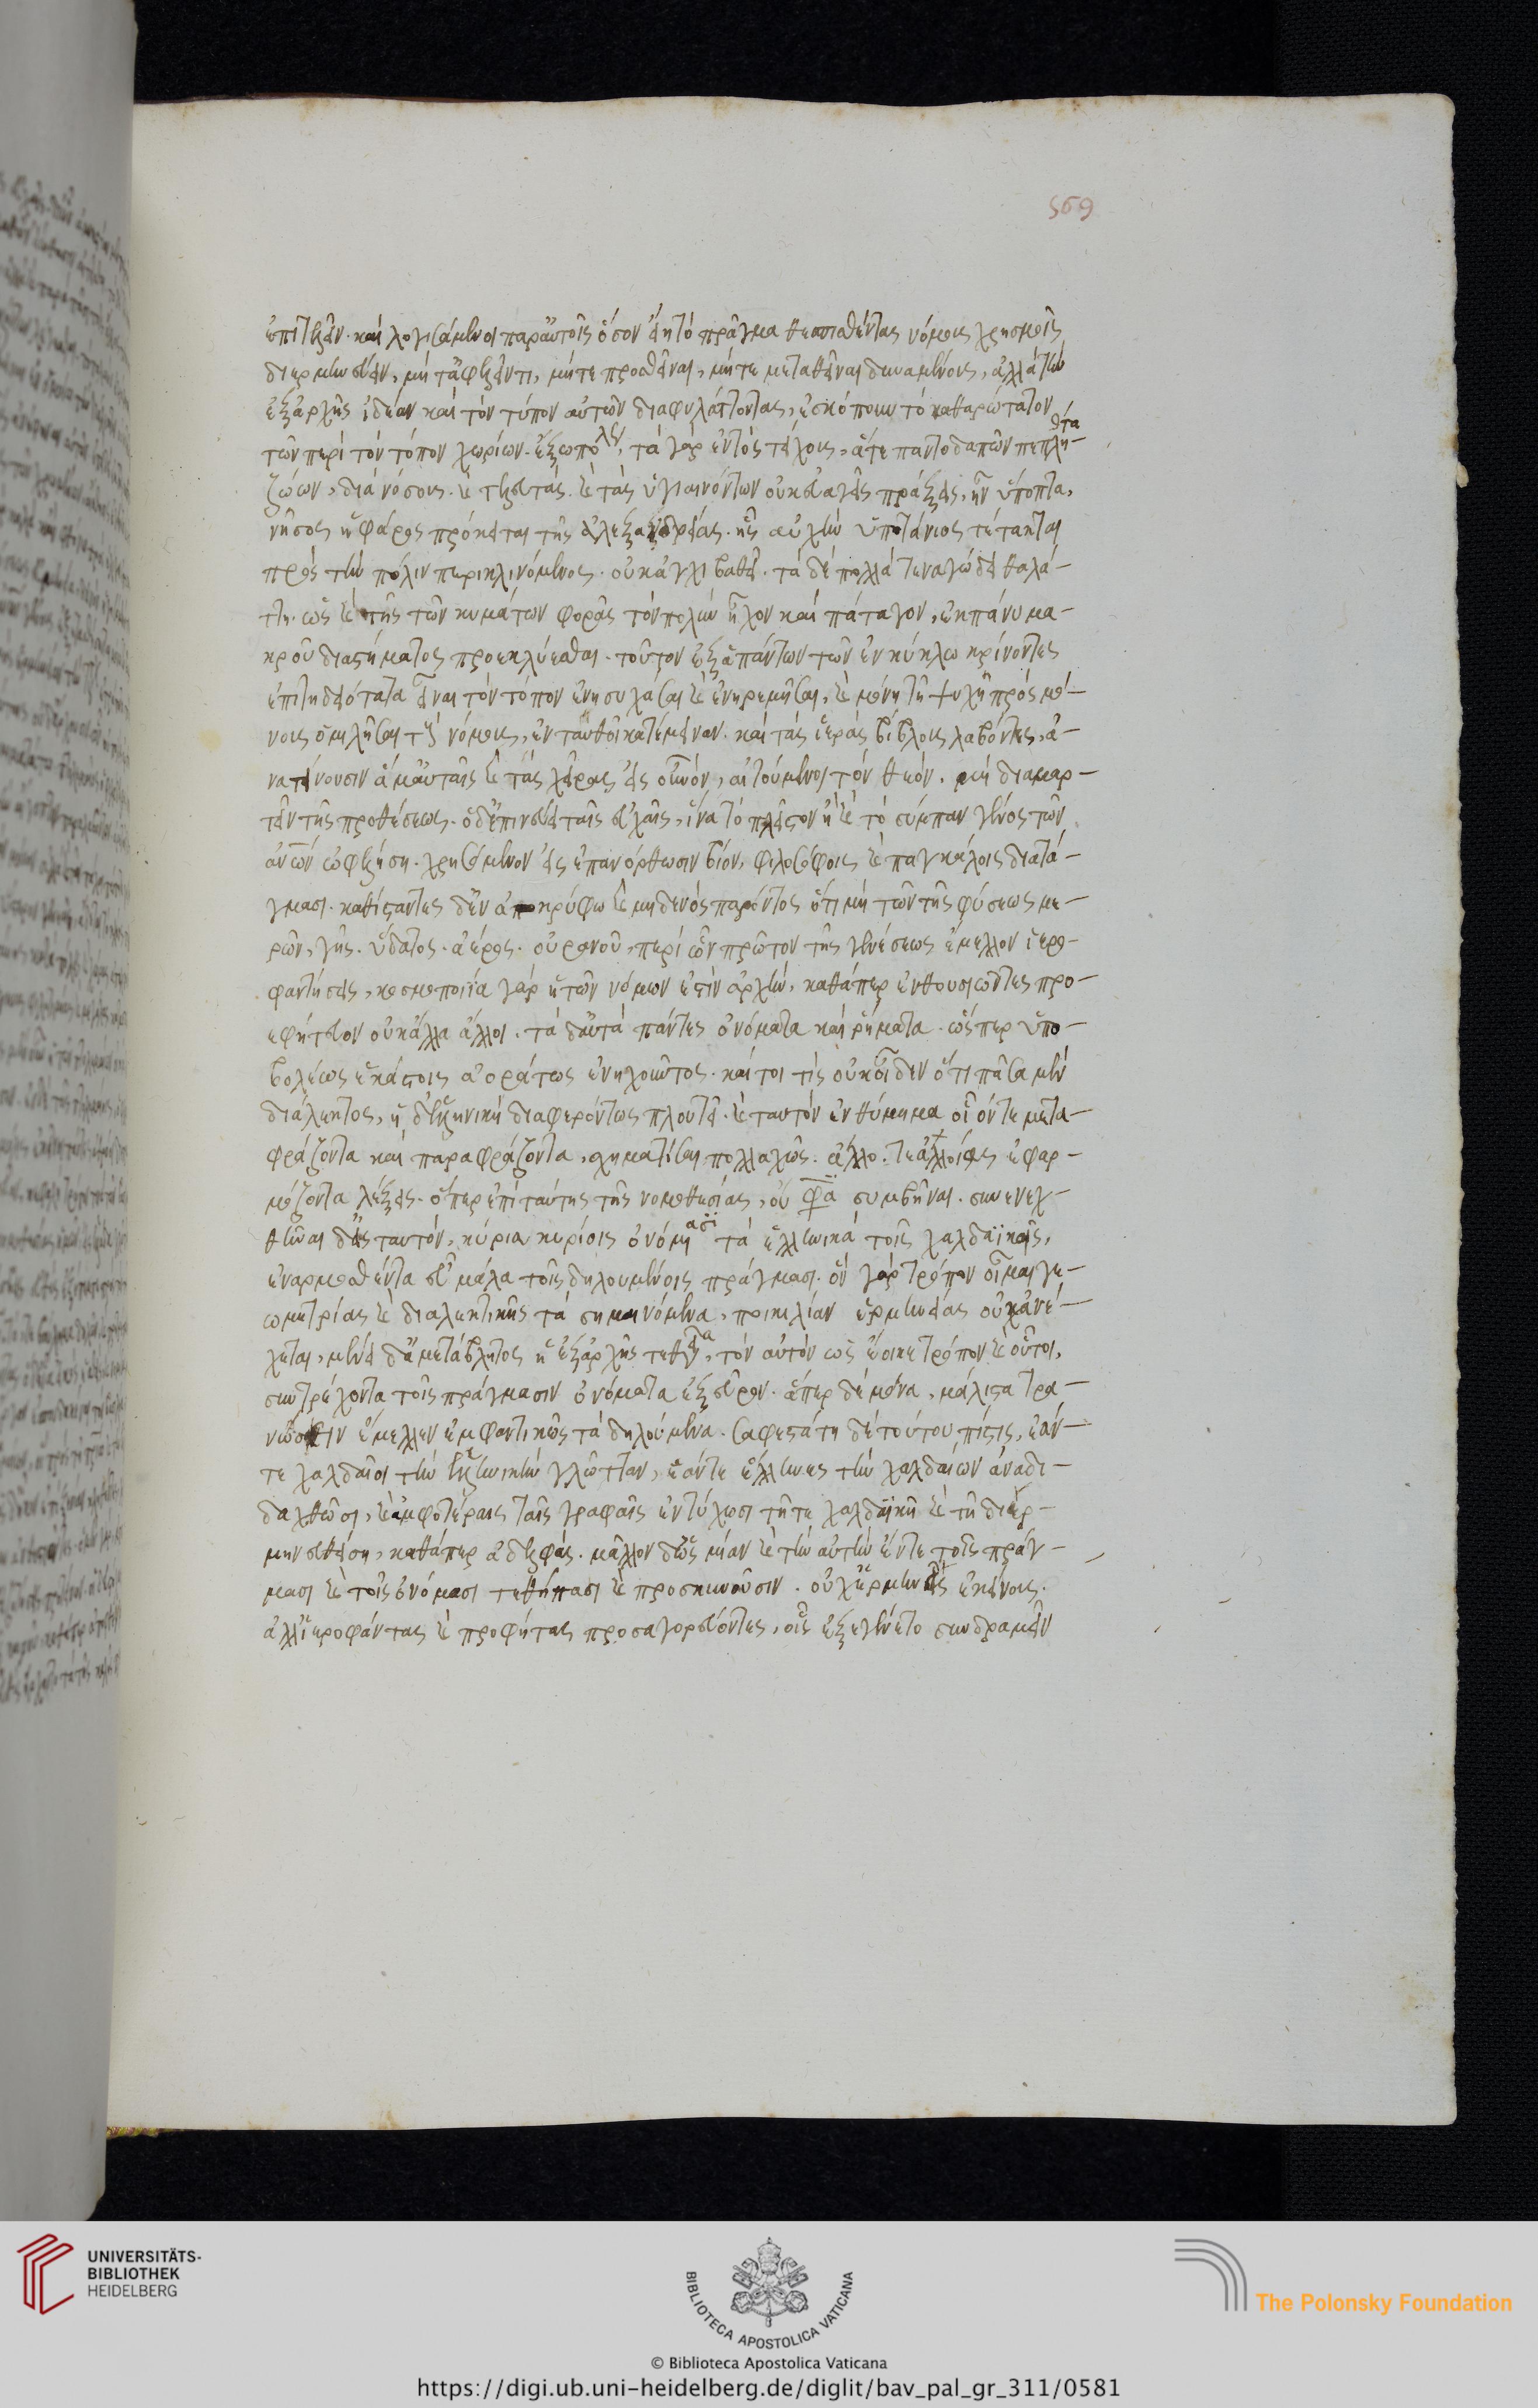 ἐπιτελεῖν. καὶ λογισάμενοι παρ' αὐτοῖς ὅσον εἴη τὸ πρᾶγμα θεσπισθέντας νόμους χρησμοῖς
διερμηνεύειν, μήτ' ἀφελεῖν τι, μήτε προσθεῖναι, μήτε μεταθεῖναι δυναμένους, ἀλλὰ τὴν
ἐξ ἀρχῆς ἰδέαν καὶ τὸν τύπον αὐτῶν διαφυλάττοντας, ἐσκόπουν τὸ καθαρώτατον
τῶν περὶ τὸν τόπον χωρίων. ἔξω πόλεως, τὰ γὰρ ἐντὸς τείχους, ἅτε παντοδαπῶν πεπληθότα
ζώων, διὰ νόσους. καὶ τελευτάς. καὶ τὰς ὑγιαινόντων οὐκ εὐαγεῖς πράξεις, ἦν ὕποπτα,
νῆσος ἡ φάρος πρόκειται τῆς ἀλεξανδρείας. ἧς αὐχὴν ὑποταίνιος τέταται
πρὸς τὴν πόλιν περικλινόμενος. οὐκ ἀγχιβαθεῖ. τὰ δὲ πολλὰ τεναγώδει θαλά-
τη. ὡς καὶ τῆς τῶν κυμάτων φορᾶς τὸν πολὺν ἦχον καὶ πάταγον, ἐκ πάνυ μα-
κροῦ διαστήματος προεκλύεσθαι. τοῦτον ἐξ ἁπάντων τῶν ἐν κύκλω κρίνοντες
ἐπιτηδειότατα εἶναι τὸν τόπον ἐνησυχάσαι καὶ ἐνηρεμῆσαι, καὶ μόνη τῆ ψυχῆ πρὸς μό-
νους ὁμιλῆσαι τοὺς νόμους, ἐνταυθοῖ κατέμειναν. καὶ τὰς ἱερὰς βίβλους λαβόντες, ἀ-
νατείνουσιν ἅμ' αὐταῖς καὶ τὰς χεῖρας εἰς οὐνόν, αἰτούμενοι τὸν θεόν. μὴ διαμαρ-
τεῖν τῆς προθέσεως. ὁ δ' ἐπινεύει ταῖς εὐχαῖς, ἵνα τὸ πλεῖστον ἢ καὶ τὸ σύμπαν γένος τῶν
ἀνων ὠφελήση. χρησόμενον εἰς ἐπανόρθωσιν βίου, φιλοσόφοις καὶ παγκάλοις διατά-
γμασι. καθίσαντες δ' ἐν ἀποκρύφω καὶ μηδενὸς παρόντος ὅτι μὴ τῶν τῆς φύσεως με-
ρῶν, γῆς. ὕδατος. ἀέρος. οὐρανοῦ, περὶ ὧν πρῶτον τῆς γενέσεως ἔμελλον ἱερο-
φαντήσειν, κοσμοποιΐα γὰρ ἡ τῶν νόμων ἐστὶν ἀρχήν, καθάπερ ἐνθουσιῶντες προ-
εφήτευον οὐκ ἄλλα ἄλλοι. τὰ δ' αὐτὰ πάντες ὀνόματα καὶ ῥήματα. ὥσπερ ὑπο-
βολέως ἑκάστοις ἀοράτως ἐνηχοῦντος. καί τοι τίς οὐκ οἶδεν ὅτι πᾶσα μὲν
διάλεκτος, ἡ δ' ἑλληνικὴ διαφερόντως πλουτεῖ. καὶ ταυτὸν ἐνθύμημα οἷόν τε μετα-
φράζοντα καὶ παραφράζοντα, σχηματίσαι πολλαχῶς. ἄλλο. τε ἀλλοίας ἐφαρ-
μόζοντα λέξεις. ὅπερ ἐπὶ ταύτης τῆς νομοθεσίας, οὔ φα συμβῆναι. συνενεχ-
θῆναι δ' εἰς ταυτόν, κύρια κυρίοις ὀνόμασι τὰ ἑλληνικὰ τοῖς χαλδαϊκοῖς,
ἐναρμοσθέντα εὖ μάλα τοῖς δηλουμένοις πράγμασι. ὃν γὰρ τρόπον οἶμαι γε-
ωμετρίας καὶ διαλεκτικῆς τὰ σημαινόμενα, ποικιλίαν ἑρμηνείας οὐκ ἀνέ-
χεται, μένει δ' ἀμετάβλητος ἡ ἐξαρχῆς τεθεῖσα, τὸν αὐτὸν ὡς ἔοικε τρόπον καὶ οὗτοι,
συντρέχοντα τοῖς πράγμασιν ὀνόματα ἐξεῦρον. ἅπερ δὲ μόνα, μάλιστα τρα-
νώσειν ἔμελλεν ἐμφαντικῶς τὰ δηλούμενα. σαφεστάτη δὲ τούτου πίστις, ἐάν-
τε χαλδαῖοι τὴν ἑλληνικὴν γλῶτταν, ἐάντε ἕλληνες τὴν χαλδαίων ἀναδι-
δαχθῶσι, καὶ ἀμφοτέραις ταῖς γραφαῖς ἐντύχωσι τῆ τε χαλδαϊκῆ καὶ τῆ διερ-
μηνευθείση, καθάπερ ἀδελφάς. μᾶλλον δ' ὡς μίαν καὶ τὴν αὐτὴν ἔν τε τοῖς πράγ-
μασι καὶ τοῖς ὀνόμασι τεθήπασι καὶ προσκυνοῦσιν. οὐχ ἑρμηνεῖς ἐκείνους.
ἀλλ' ἱεροφάντας καὶ προφήτας προσαγορεύοντες, οἷς ἐξεγένετο συνδραμεῖν
569
UNIVERSITÄTS-
BIBLIOTHEK
HEIDELBERG
BIBLIOTECA APOSTOLICA VATICANA
© Biblioteca Apostolica Vaticana
The Polonsky Foundation
https://digi.ub.uni-heidelberg.de/diglit/bav_pal_gr_311/0581